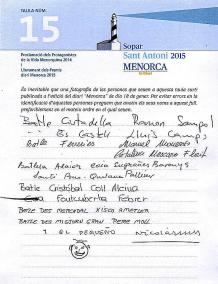 TAULA NÚM.
15
Sopar
Sant Antoni 2015
MENORCA
Proclamació dels Protagonistes
de la Vida Menorquina 2014
i
Lliurament dels Premis
diari Menorca 2015
És inevitable que una fotografia de las persones que seuen a aquesta taula surti
publicada a l'edició del diari "Menorca" del 18 de gener. Per evitar errors en la
identificació d'aquestes persones preguem que anotin els seus noms a aquest full,
preferiblement en el mateix ordre en el qual seuen.
Batle Ciutadella Ramon Sampol
Es Castell Lluís Camps
Batle Ferreries Manuel Monerris
Batlessa Alaior
Batle Cristóbal Coll Alcina
Fontcuberta Febrer
BATLE DES MERCADAL XISCO AMETLLER
BATLE DES MIGJORN GRAN PERE MOLL
Y EL PEQUEÑO